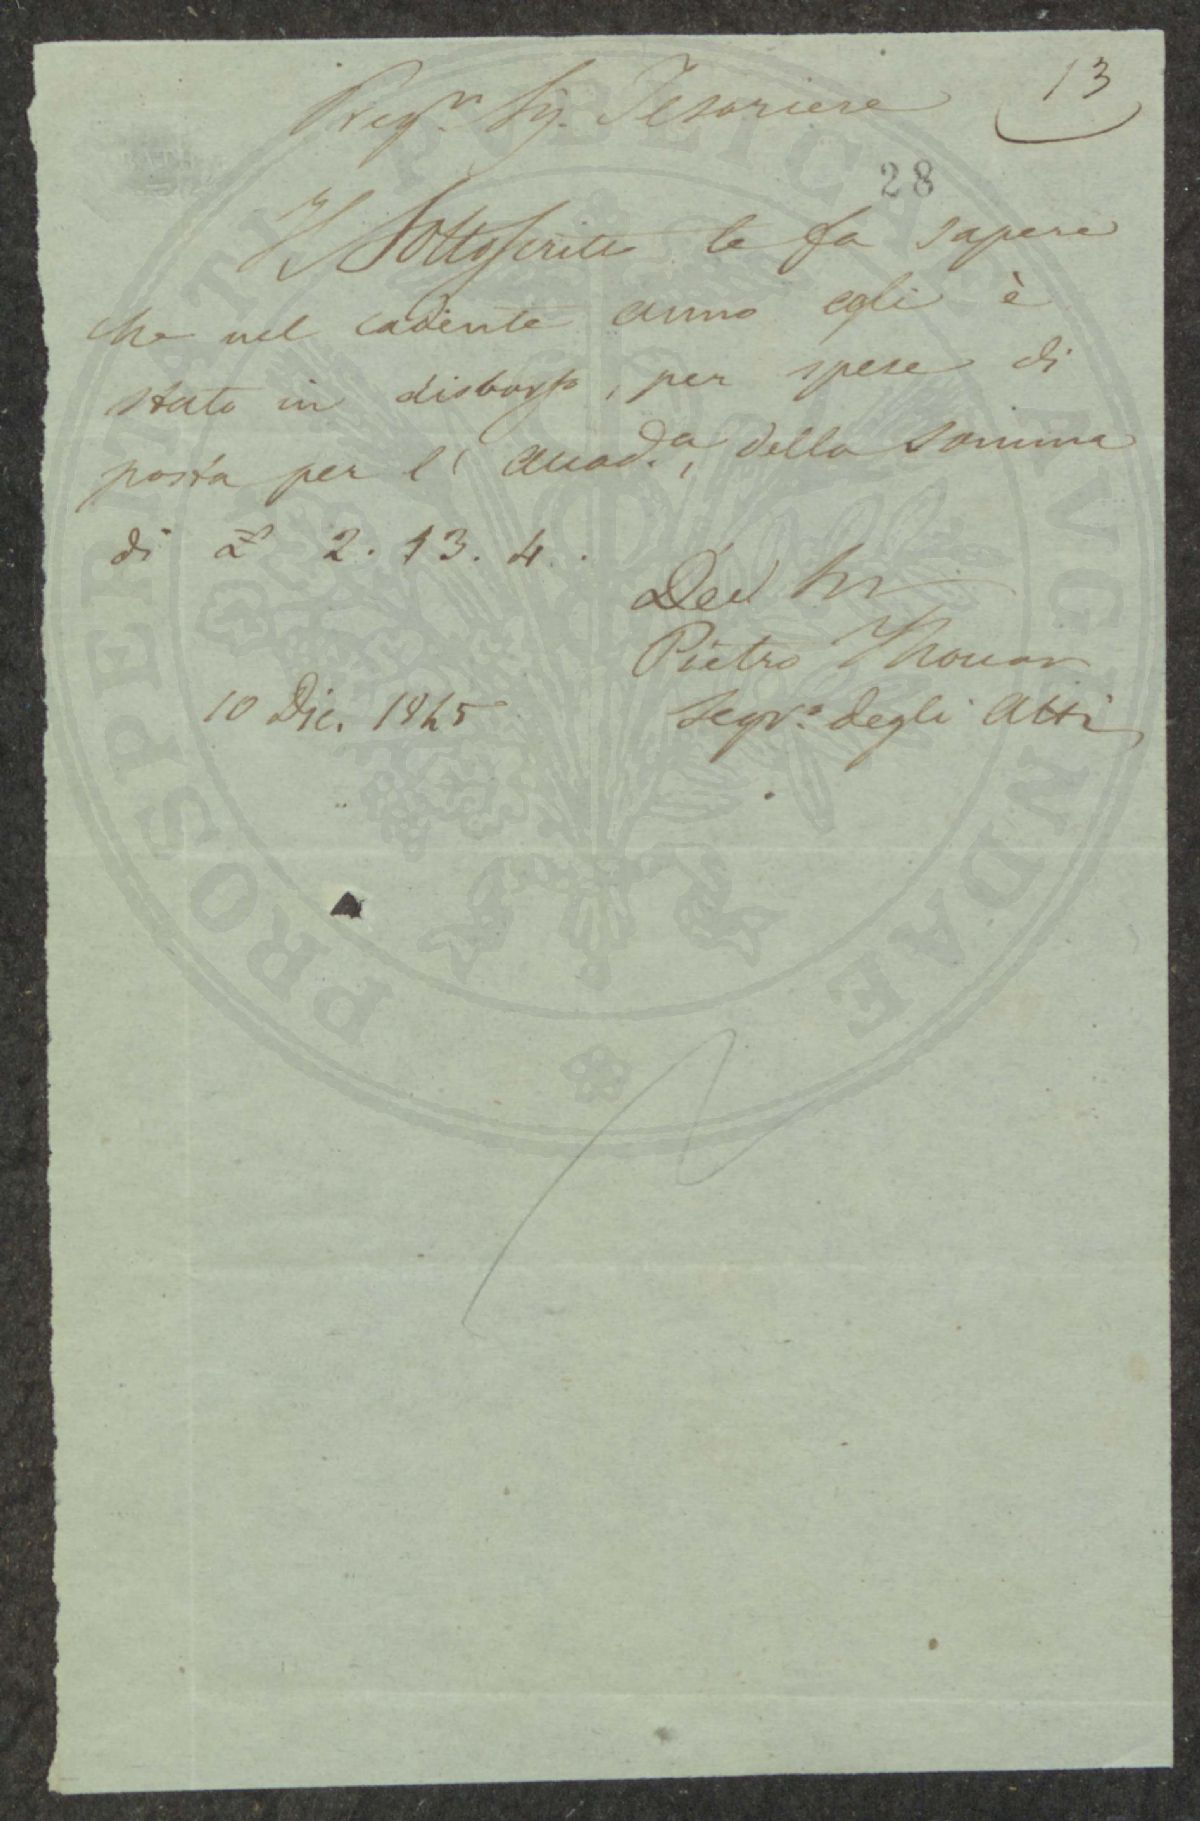 13
Preg.n Sig. Tesoriere
28
Il Sottoscritto le fa sapere
che nel cadente anno egli è
stato in disborso, per spese di
posta per l'Accad.a, della somma
di £ 2. 13. 4.
Dev
Pietro Thouar
10 Dic. 1845
Segr.o degli Atti
PROSPERITATI PUBLICAE AUGENDAE